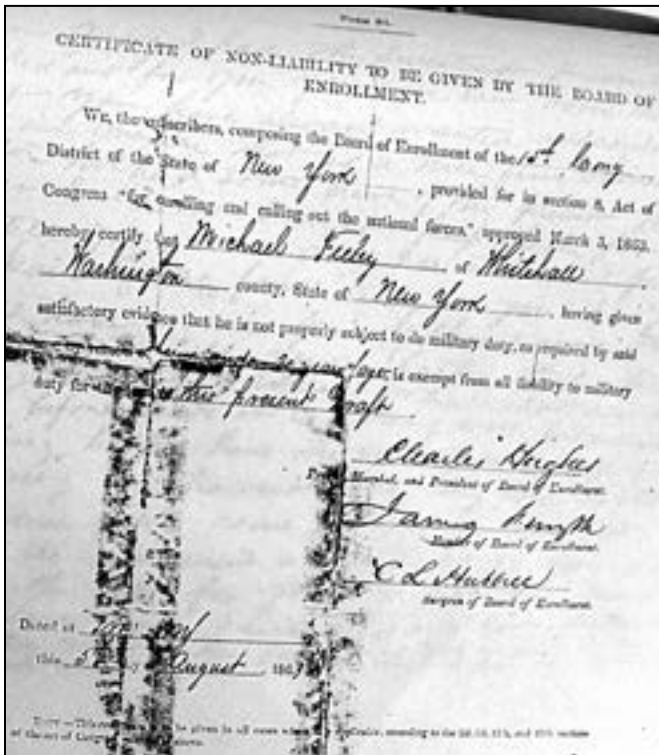 CERTIFICATE OF NON-LIABILITY TO BE GIVEN BY THE BOARD OF
ENROLLMENT.
We, the subscribers, composing the Board of Enrollment of the 15th Cong
District of the State of New York, provided for in section 8, Act of
Congress "for enrolling and calling out the national forces," approved March 3, 1863.
hereby certify that Michael Feeley of Whitehall,
Washington county, State of New York, having given
satisfactory evidence that he is not properly subject to do military duty, as required by said
under 20 years of age, is exempt from all liability to military
duty for the present Draft
Charles Hughes
Marshal, and President of Board of Enrollment.
James
Member of Board of Enrollment.
C L
Surgeon of Board of Enrollment.
Dated at
this 5 August 186
NOTE.—This be given in all cases where according to the 2d, 3d,
of the act of